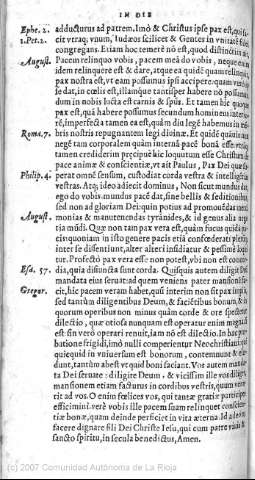 IN DIE
Ephe. 2. adducturus ad patrem, Imò & Christus ipse pax est, qui fe-
1. Pet. 2. cit vtraq; vnum, Iudæos scilicet & Gentes in vnitatē fidei
congregans. Etiam hoc temerè nō est, quod distinctim ait
August. Pacem relinquo vobis, pacem meā do vobis, neque enim
idem relinquere est & dare, atque ea quidē quam reliquit,
pax nostra est, vt eam possumus ipsi accipere: quam verò
se dat, in cœlis est, illamque tantisper habere nō possumus,
dum in nobis lucta est carnis & spūs. Et tamen hic quoque
pax est, quā habere possumus secundum hominem
rē, imperfecta tamen ea est, quādiu legē habemus in mē-
Roma. 7. bris nostris repugnantem legi diuinæ. Et quidē quin
negē tam corporalem quàm internā pacē bona esse
tamen crediderim præcipuè hic loquutum esse Christum de
pace animæ & conscientiæ, vt ait Paulus, Pax Dei quæ su-
Philip. 4. perat omnē sensum, custodiat corda vestra & intelligentias
vestras. Atq; ideo adiecit dominus, Non sicut mundus dat,
ego do vobis. mundus pacē dat, sine bellis & seditionibus,
sed non ad gloriam Dei: quin potius ad promouēdas
August. monias & manutenendas tyrānides, & id genus alia
tia mūdi. Quæ non tam pax vera est, quàm fucus quidā pa-
cis: quoniam in isto genere pacis etiā confœderati plerūq;
inter se dissentiunt, alter alteri insidiatur & pessimè
tur. Profectò pax vera esse non potest, vbi non est concor-
Esa. 57. dia, quia disiuncta sunt corda. Quisquis autem diligit
mandata eius seruat: ad quem veniens pater mansionem
Gregor. cit, hic pacem veram habet, quā interim non
sed tantùm diligentibus Deum, & facientibus bonum, & in
quorum operibus non minus quàm corde & ore
dilectio, quæ otiosa nunquam est: operatur enim magna si
est: sin verò operari renuit, iam nō est dilectio. In hac
batione frigidi, imò nulli comperientur Neochristiani,
quicquid in vniuersum est bonorum, contemnunt &
dunt, tantùm abest vt quid boni faciant. Vos autem
ta Dei seruate: diligite Deum, & vicissim ille vos diliget,
mansionem etiam facturus in cordibus vestris, quam
rit ad vos. O enim fœlices vos, qui tantæ gratiæ participes
efficimini. verè vobis ille pacem suam relinquet conscien-
tiæ bonæ, quam deinde perficiet in vita æterna. Id
facere dignare fili Dei Christe Iesu, qui cum patre viuis &
sancto spiritu, in secula benedictus, Amen.
(c) 2007 Comunidad Autónoma de La Rioja